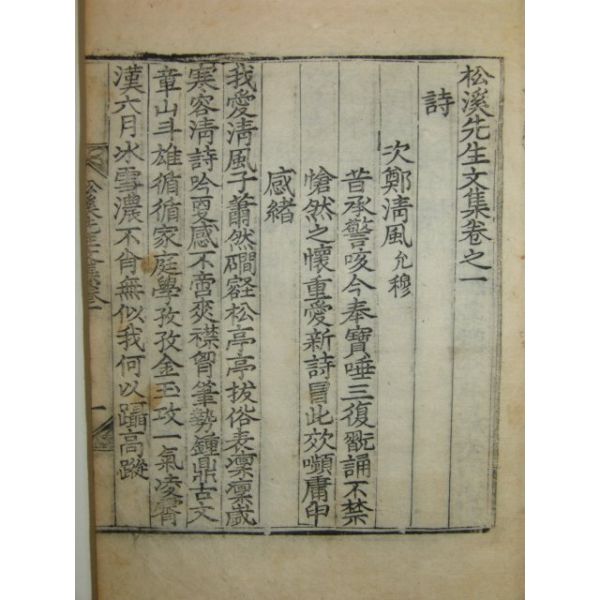 松溪先生文集卷之一
詩
次鄭淸風允穆
昔承警咳今奉寶唾三復翫誦不禁
愴然之懷重愛新詩冒此效嚬庸申
感緖
我愛淸風子蕭然磵壑松亭亭拔俗表凜凜歲
寒容淸詩吟戛感不啻爽襟胷筆勢鍾鼎古文
章山斗雄循循家庭學孜孜金玉攻一氣凌霄
漢六月冰雪濃不肖無似我何以躡高蹤
松溪先生文集卷一
一